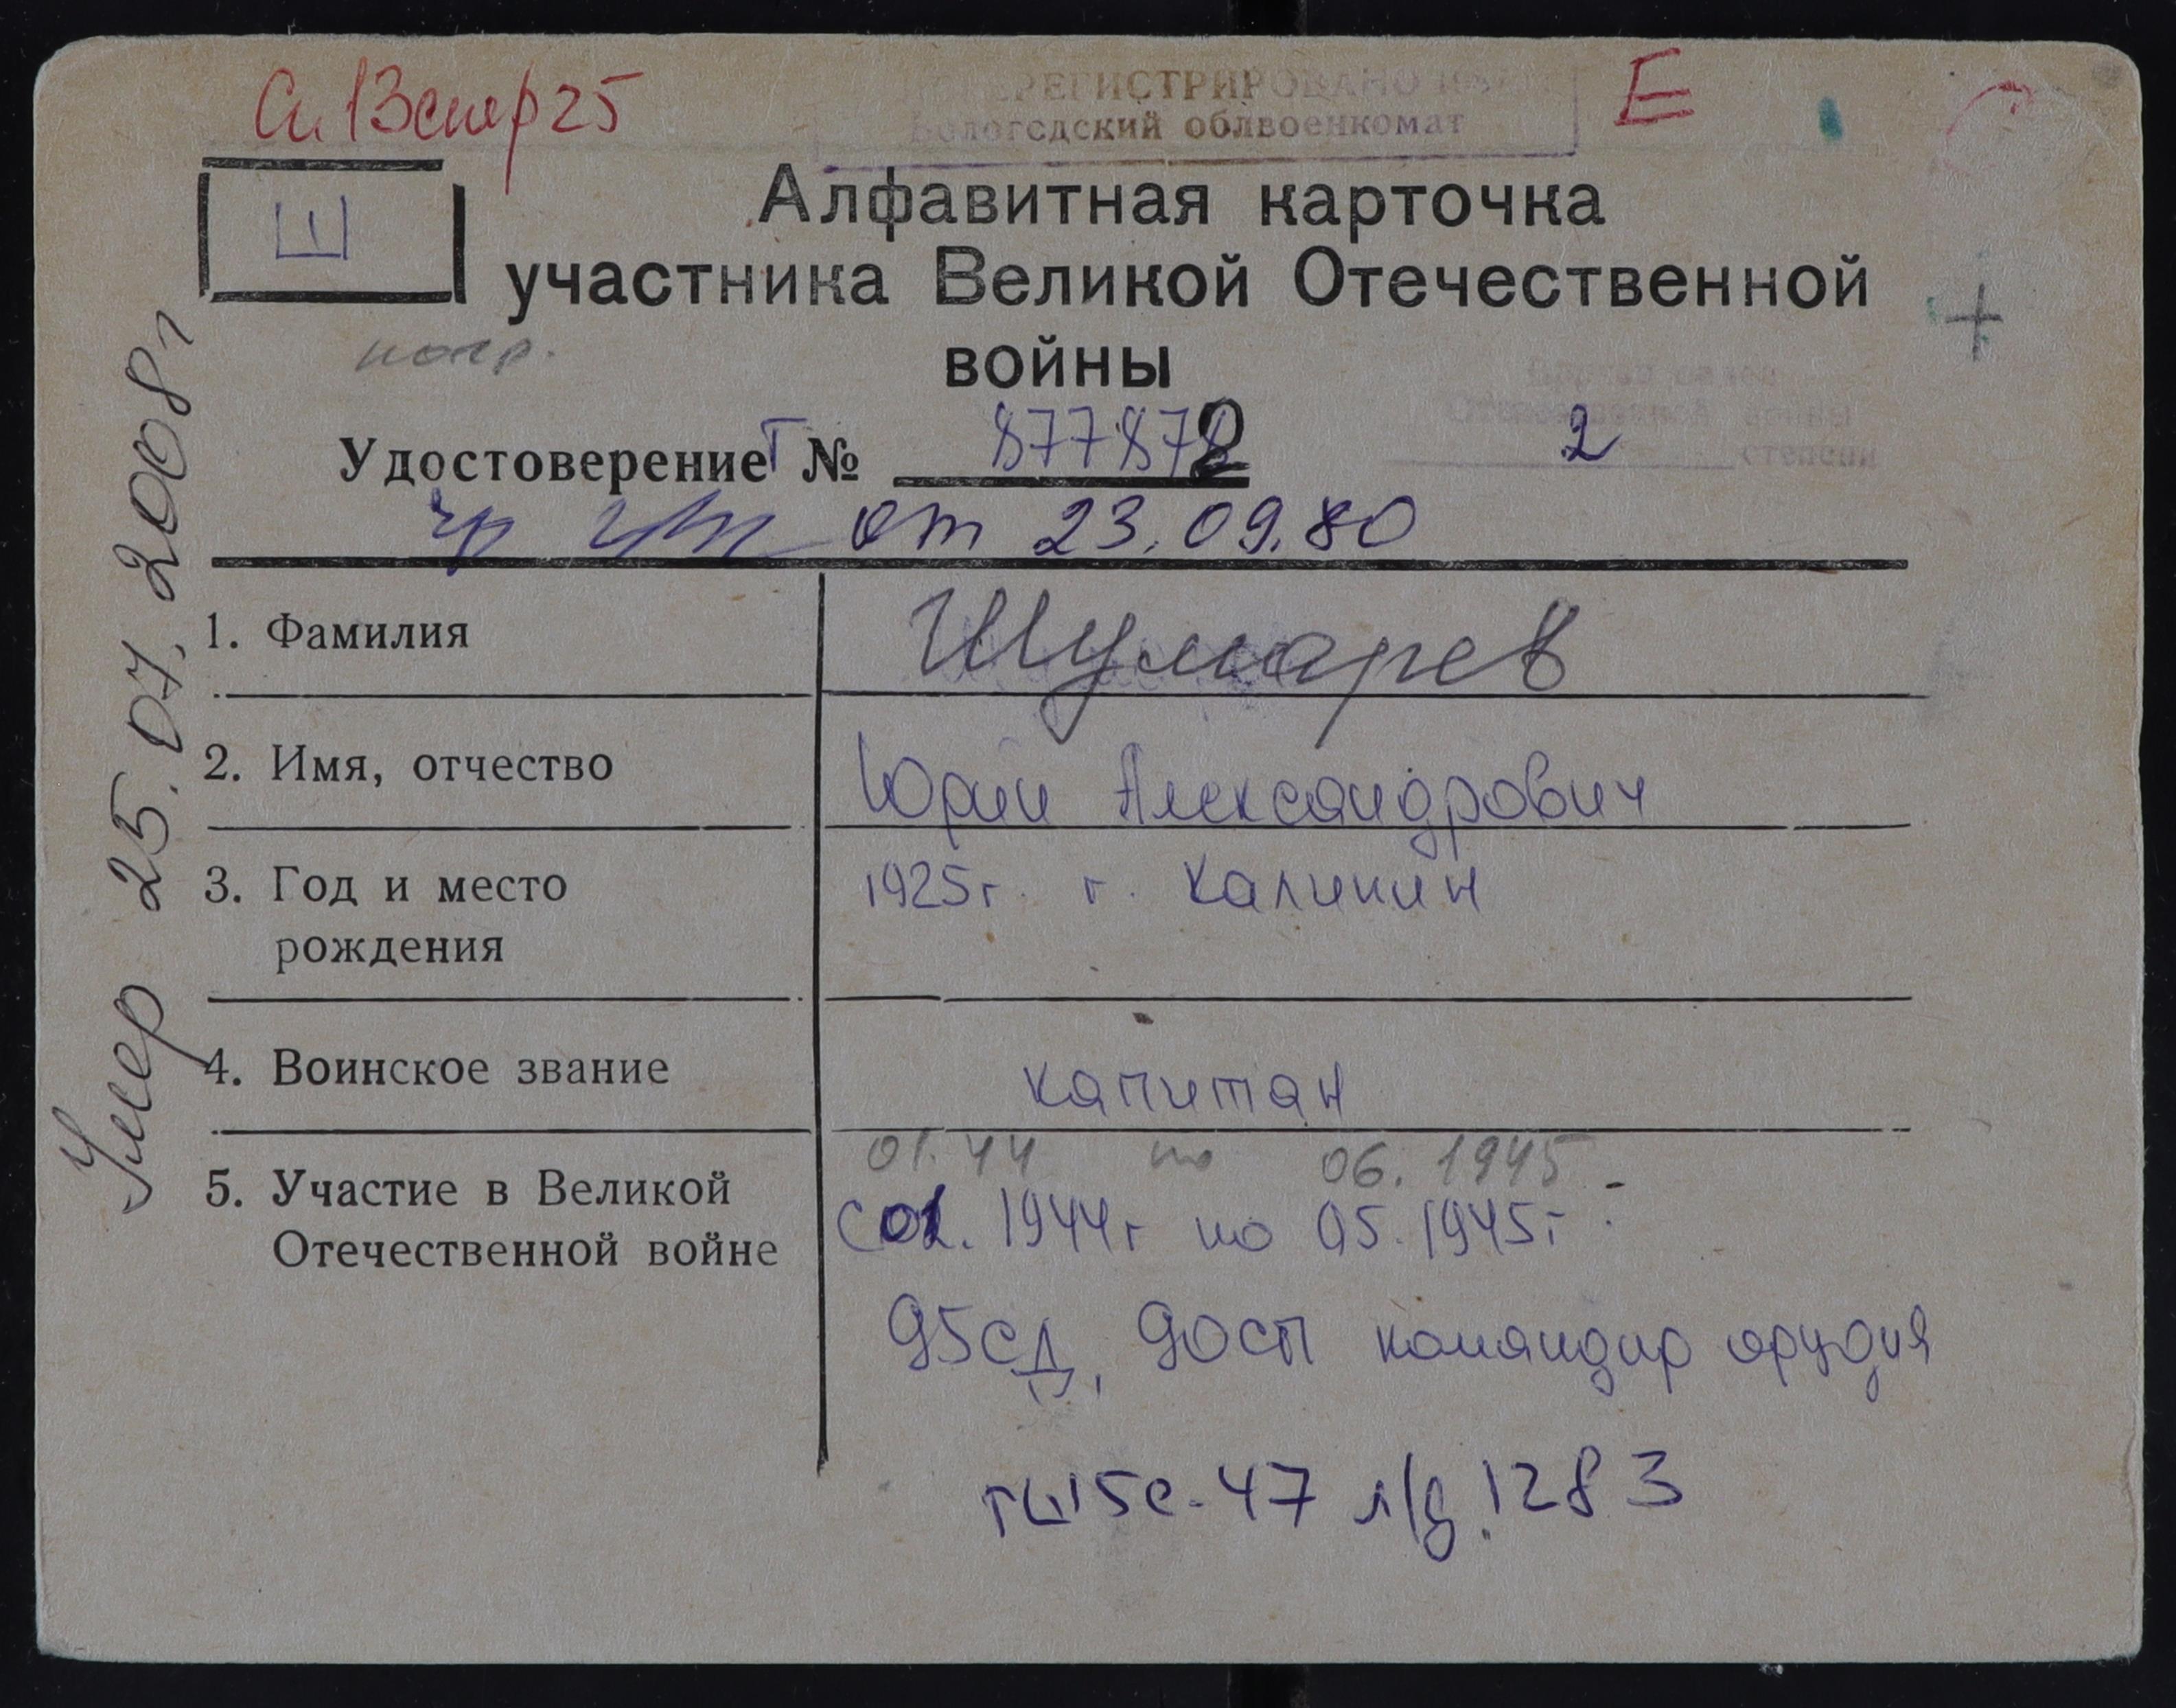 Сп. 13 смер 25
РЕГИСТРИРОВАНО
Вологодский облвоенкомат
Е
Е
Алфавитная карточка
участника Великой Отечественной
войны
Удостоверение Т № 877872
Отечественной войны
2 степени
от 23.09.80
Умер 25.07.2008г
1. Фамилия
Шумарев
2. Имя, отчество
Юрий Александрович
3. Год и место
рождения
1925г. г. Калинин
4. Воинское звание
капитан
5. Участие в Великой
Отечественной войне
01.44 по 06.1945
с 01.1944г по 05.1945г.
95сд, 90сп командир орудия
47 л/д 1283